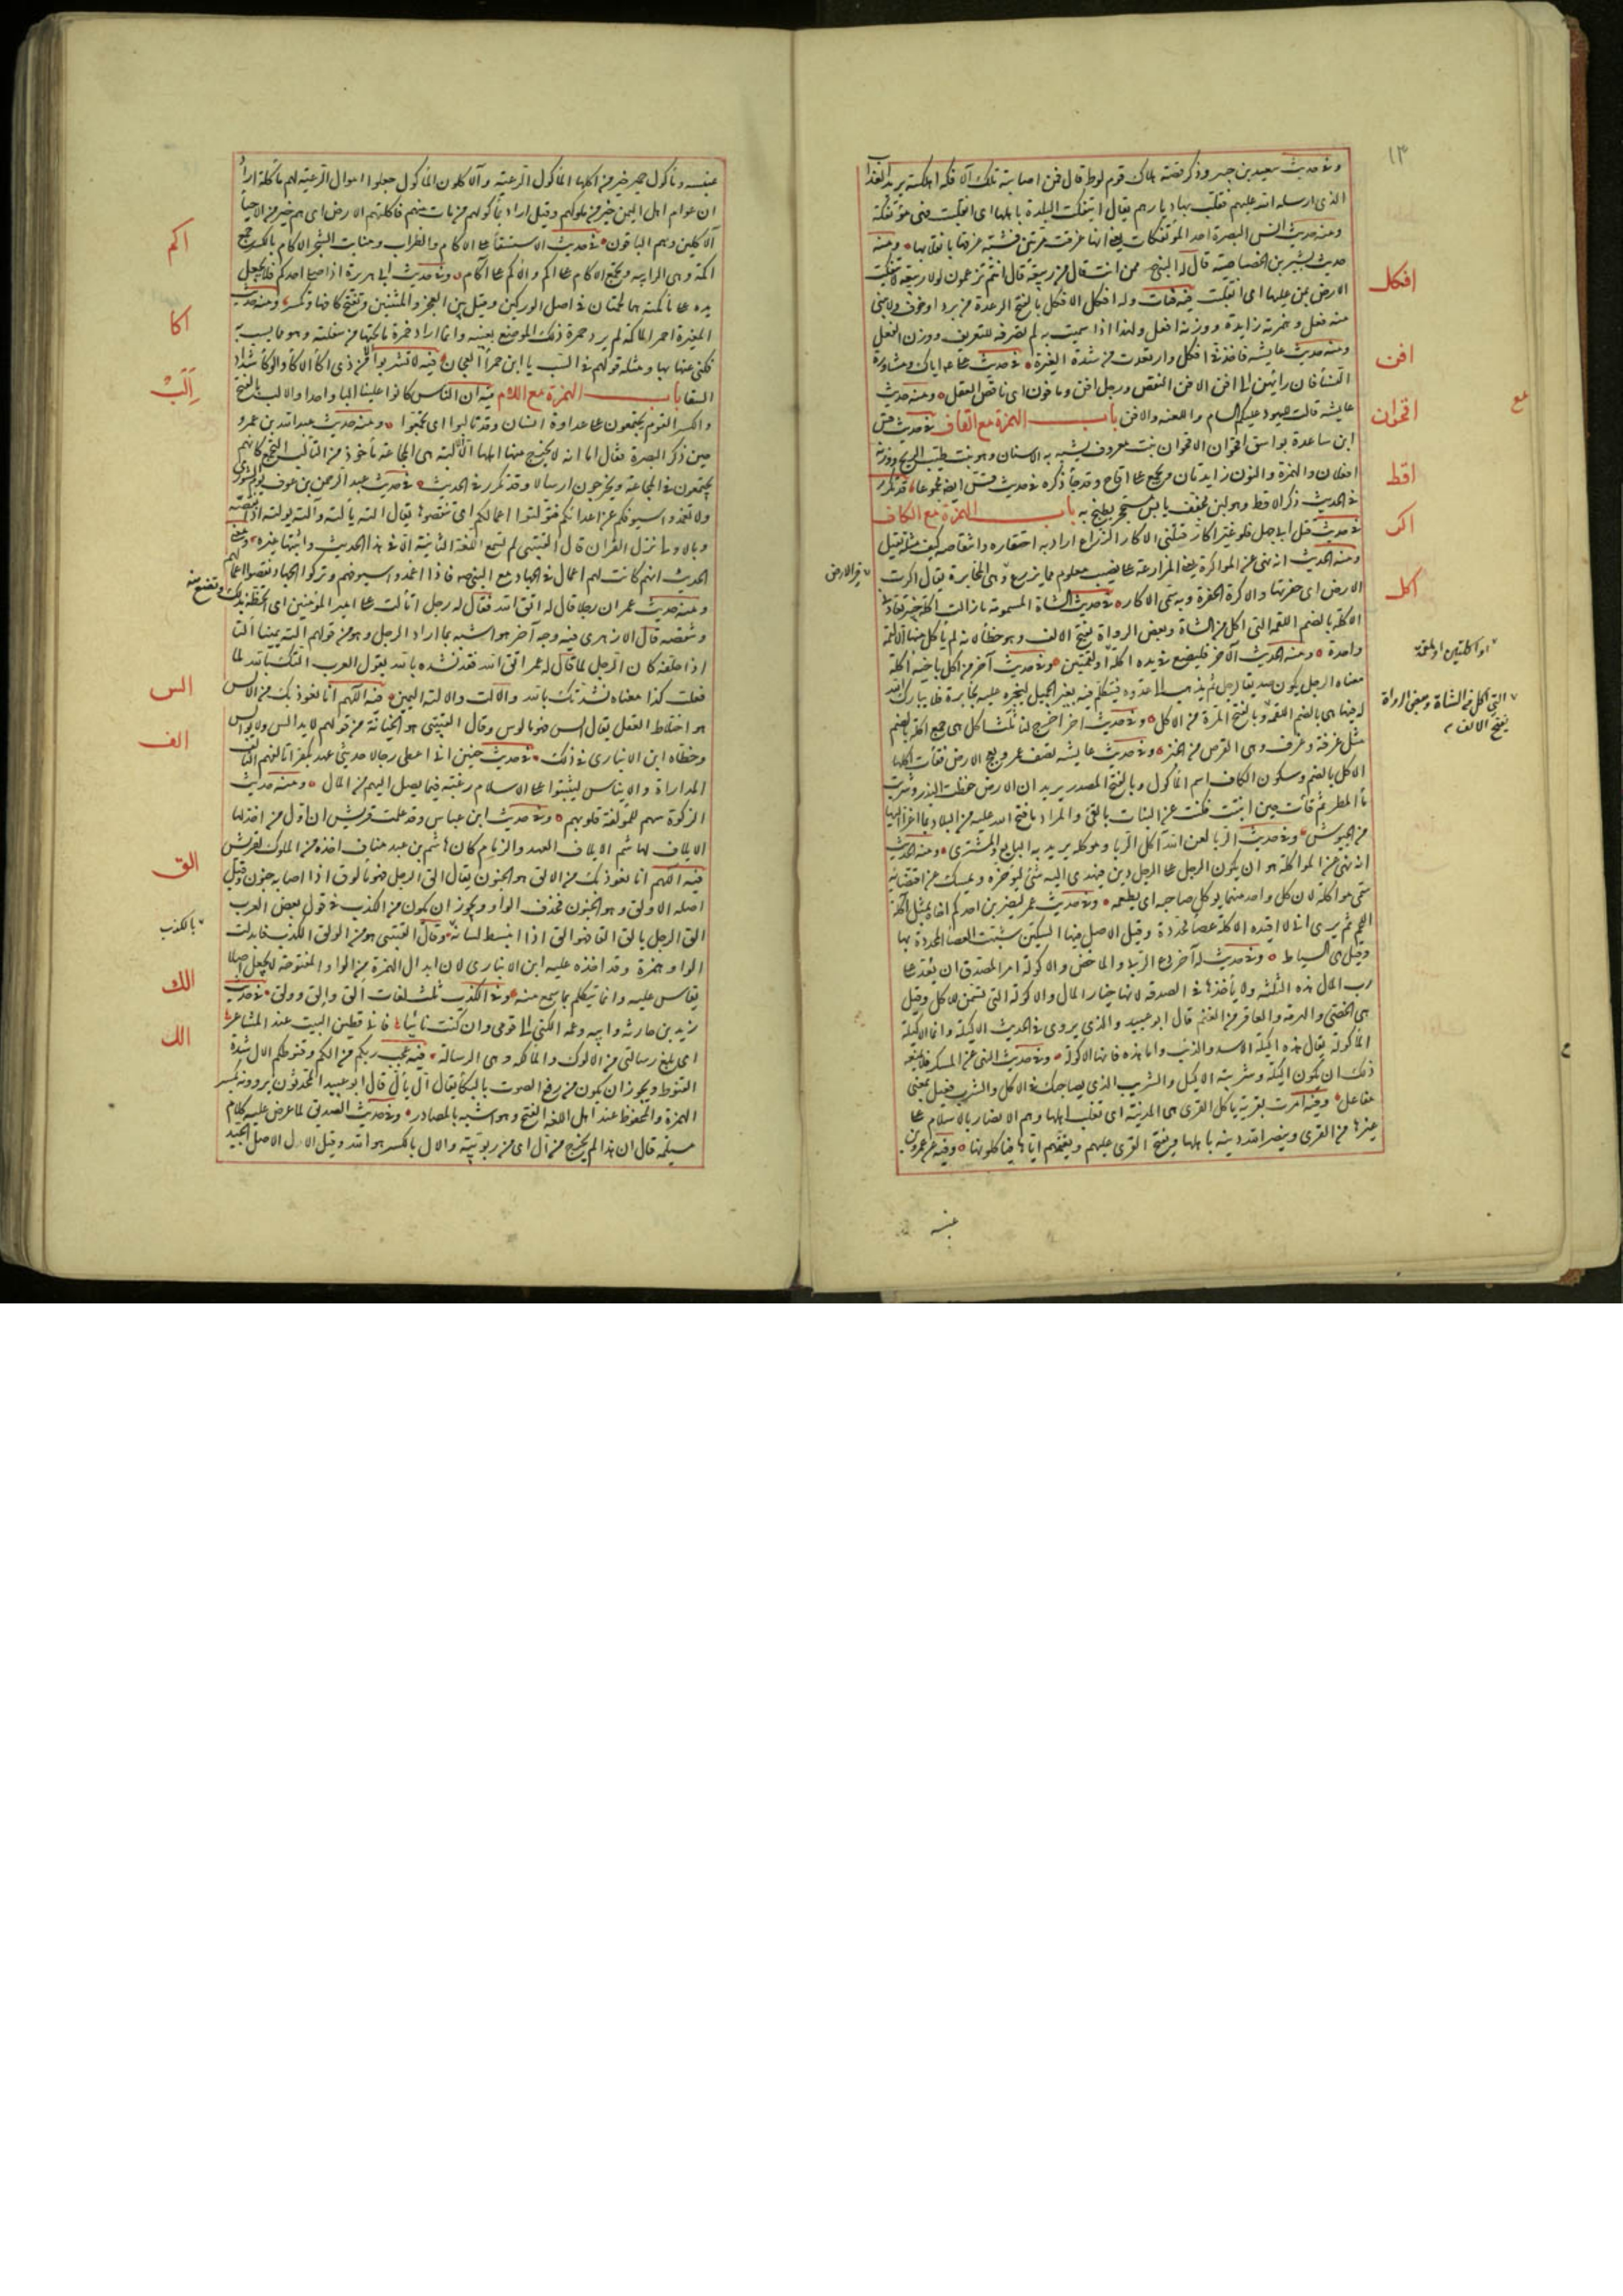 ١٣
وفى حديث سعيد بن جبير وذكر قصة هلاك قوم لوط قال فمن اصابته تلك الافكة اهلكته يريد العذاب
الذى ارسله الله عليهم فقلب بها ديارهم يقال ائتفكت البلدة باهلها اى انقلبت فهى مؤتفكة
ومنه حديث انس البصرة احد المؤتفكات يعنى انها غرقت مرتين فشبه غرقها بانقلابها ومنه
حديث بشير بن الخصاصية قال له النبى ممن انت قال من ربيعة قال انتم تزعمون لولا ربيعة لائتفكت
الارض بمن عليها اى انقلبت فيه فبات وله افكل الافكل بالفتح الرعدة من برد او خوف ولا يبنى
منه فعل وهمزته زايدة ووزنه افعل ولهذا اذا سميت به لم تصرفه للتعريف ووزن الفعل
ومنه حديث عايشة فاخذنى افكل وارتعدت من شدة الغيرة فى حديث على اياك ومشاورة
النساء فان رأيهن الى افن الافن النقص ورجل افن ومأفون اى ناقص العقل ومنه حديث
عايشة قالت لليهود عليكم السام واللعنة والافن باب الهمزة مع القاف فى حديث قس
ابن ساعدة بواسق اقحوان الاقحوان نبت معروف يشبه به الاسنان وهو نبت طيب الريح ووزنه
افعلان والهمزة والنون زايدتان ويجمع على اقاح وقد جاء ذكره فى حديث قس ايضا مجموعا قد تكرر
فى الحديث ذكر الاقط وهو لبن مجفف يابس مستحجر يطبخ به باب الهمزة مع الكاف
فى حديث قتل ابى جهل فلو غير اكار قتلنى الاكار الزراع اراد به احتقاره وانتقاصه كيف مثله يقتل مثله
ومنه الحديث انه نهى عن المواكرة يعنى المزارعة على نصيب معلوم مما يزرع وهى المخابرة يقال اكرت
الارض اى حفرتها والاكرة الحفرة وبه سمى الاكار فى حديث الشاة المسمومة ما زالت اكلة خيبر تعادنى
الاكلة بالضم اللقمة التى اكل من الشاة وبعض الرواة بفتح الالف وهو خطأ لانه لم يأكل منها الا لقمة
واحدة ومنه الحديث الآخر فليضع فى يده اكلة او لقمتين وفى حديث آخر من اكل باخيه اكلة
معناه الرجل يكون صديقا لرجل ثم يذهب الى عدوه فيتكلم فيه بغير الجميل ليجيزه عليه بجايزة فلا يبارك الله
له فيها هى بالضم اللقمة وبالفتح المرة من الاكل وفى حديث آخر اخرج لنا ثلث اكل هى جمع اكلة بالضم
مثل غرفة وغرف وهى القرص من الخبز وفى حديث عايشة تصف عمر وبعج الارض فقاءت اكلها
الاكل بالضم وسكون الكاف اسم المأكول وبالفتح المصدر يريد ان الارض حفظت البذر وشربت
ماء المطر ثم قاءت حين انبتت فكنت عن النبات بالقئ والمراد ما فتح الله عليه من البلاد بما اغزا اليها
من الجيوش وفى حديث الربا لعن الله آكل الربا وموكله يريد به البايع والمشترى ومنه الحديث
انه نهى عن المواكلة هو ان يكون الرجل على الرجل دين فيهدى اليه شئ ليؤخره ويمسك عن اقتضائه
سمى مواكلة لان كل واحد منهما يوكل صاحبه اى يطعمه وفى حديث عمر ليضربن احدكم اخاه بمثل آكلة
اللحم ثم يرى انى لا اقيده الآكلة عصا محددة وقيل الاصل فيها السكين شبهت العصا المحددة بها
وقيل هى السياط وفى حديث له آخر دع الربى والماخض والاكولة امر المصدق ان يعد على
رب المال هذه الثلثة ولا يأخذها فى الصدقة لانها خيار المال والاكولة التى تسمن للاكل وقيل
هى الخصى والهرمة والعاقر من الغنم قال ابو عبيد والذى يروى فى الحديث الاكيلة وانما الاكيلة
المأكولة يقال هذه اكيلة الاسد والذئب واما هذه فانها الاكولة وفى حديث النهى عن المنكر فلا يمنعه
ذلك ان يكون اكيله وشريبه الاكيل والشريب الذى يصاحبك فى الاكل والشرب فعيل بمعنى
مفاعل وفيه امرت بقرية تأكل القرى هى المدينة اى تغلب اهلها وهم الانصار بالاسلام على
غيرها من القرى وينصر الله دينه باهلها ويفتح القرى عليهم ويغنمهم اياها فيأكلونها وفيه عن عمرو بن
عبسه
افكل
افن
اقحوان
اقط
اكر
اكل
او اكلتين او لقمة
التى اكل من الشاة وبعض الرواة
بفتح الالف
عبسة ومأكول حمير خير من آكلها المأكول الرعية والآكلون الملوك جعلوا اموال الرعية لهم مأكلة اراد
ان عوام اهل اليمن خير من ملوكهم وقيل اراد بمأكولهم من مات منهم فاكلتهم الارض اى هم خير من الاحياء
الآكلين وهم الباقون فى حديث الاستسقاء على الآكام والظراب ومنابت الشجر الاكام بالكسر جمع
اكمة وهى الرابية وتجمع الاكام على اكم والاكم على آكام وفى حديث ابى هريرة اذا صلى احدكم فلا يجعل
يده على مأكمته هما لحمتان فى اصل الوركين وقيل بين العجز والمتنين وتفتح كافها وتكسر ومنه حديث
المغيرة احمر المأكمة لم يرد حمرة ذلك الموضع بعينه وانما اراد حمرة ما تحتها من سفلته وهو مما يسب به
فكنى عنها بها ومثله قولهم فى السب يا ابن حمراء العجان فيه لا تشربوا الا من ذى اكاء الاكاء والوكاء شداد
السقا باب الهمزة مع اللام فيه ان الناس كانوا علينا البا واحدا والالب بالفتح
والكسر القوم يجتمعون على عداوة انسان وقد تألبوا اى تجمعوا ومنه حديث عبد الله بن عمرو
حين ذكر البصرة فقال اما انه لا يخرج منها اهلها الا الالبة هى المجاعة مأخوذ من التألب التجمع كانهم
يجتمعون فى المجاعة ويخرجون ارسالا وقد تكرر فى الحديث فى حديث عبد الرحمن بن عوف يوم الشورى
ولا تغمدوا سيوفكم عن اعدائكم فتولتوا اعمالكم اى تنقصوها يقال الته يألته وآلته يولته اذا نقصه
وبالاولى نزل القرآن قال القتيبى لم تسمع اللغة الثانية الا فى هذا الحديث واثبتها غيره ومعنى
الحديث انهم كانت لهم اعمال فى الجهاد مع النبى فاذا اغمدوا سيوفهم وتركوا الجهاد نقصوا اعمالهم
ومنه حديث عمر ان رجلا قال له اتق الله فقال له رجل اتألت على امير المؤمنين اى اتحطه بذلك وتضع منه
وتنقصه قال الازهرى فيه وجه آخر هو اشبه بما اراد الرجل وهو من قولهم الته يمينا التا
اذا حلفه كان الرجل لما قال لعمر اتق الله فقد نشده بالله يقول العرب التك بالله لما
فعلت كذا معناه نشدتك بالله والالت والالتة اليمين فيه اللهم انا نعوذ بك من الالس
هو اختلاط العقل يقال الس فهو مالوس وقال القتيبى هو الخيانة من قولهم لا يدالس ولا يوالس
وخطأه ابن الانبارى فى ذلك فى حديث حنين انى اعطى رجالا حديثى عهد بكفر اتألفهم التألف
المداراة والايناس ليثبتوا على الاسلام رغبة فيما يصل اليهم من المال ومنه حديث
الزكوة سهم للمولفة قلوبهم وفى حديث ابن عباس وقد علمت قريش ان اول من اخذ لها
الايلاف لهاشم الايلاف العهد والذمام كان هاشم بن عبد مناف اخذه من الملوك لقريش
فيه اللهم انا نعوذ بك من الالق هو الجنون يقال الق الرجل فهو مألوق اذا اصابه جنون وقيل
اصله الاولق وهو الجنون فحذف الواو ويجوز ان يكون من الكذب فى قول بعض العرب
الق الرجل يالق القا فهو الق اذا انبسط لسانه وقال القتيبى هو من الولق الكذب فابدلت
الواو همزة وقد اخذه عليه ابن الانبارى لان ابدال الهمزة من الواو المفتوحة لا يجعل اصلا
يقاس عليه وانما يتكلم بما سمع منه وفى الكذب ثلث لغات الق والق وولق فى حديث
زيد بن حارثة وابيه وعمه الكنى الى قومى وان كنت نائيا فانى قطين البيت عند المشاعر
اى بلغ رسالتى من الالوك والمالكة وهى الرسالة فيه عجب ربكم من الكم وقنوطكم الال شدة
القنوط ويجوز ان يكون من رفع الصوت بالبكاء يقال ال يأل قال ابو عبيد المحدثون يروونه بكسر
الهمزة والمحفوظ عند اهل اللغة الفتح وهو اشبه بالمصادر وفى حديث الصديق لما عرض عليه كلام
مسيلمة قال ان هذا لم يخرج من ال اى من ربوبية والال بالكسر هو الله وقيل الال الاصل الجيد
اكم
اكا
الب
الس
الف
الق
بالكذب
الك
الل